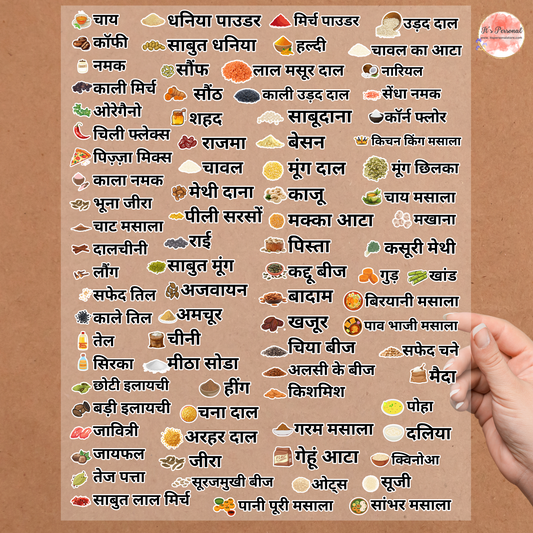 चाय
धनिया पाउडर
मिर्च पाउडर
उड़द दाल
It's Personal
कॉफी
साबुत धनिया
हल्दी
चावल का आटा
नमक
सौंफ
लाल मसूर दाल
नारियल
काली मिर्च
सौंठ
काली उड़द दाल
सेंधा नमक
ओरेगैनो
शहद
साबूदाना
कॉर्न फ्लोर
चिली फ्लेक्स
राजमा
बेसन
किचन किंग मसाला
पिज़्ज़ा मिक्स
चावल
मूंग दाल
मूंग छिलका
काला नमक
मेथी दाना
काजू
चाय मसाला
भूना जीरा
पीली सरसों
मक्का आटा
मखाना
चाट मसाला
राई
पिस्ता
कसूरी मेथी
दालचीनी
साबुत मूंग
कद्दू बीज
गुड़
खांड
लौंग
अजवायन
बादाम
बिरयानी मसाला
सफेद तिल
अमचूर
खजूर
पाव भाजी मसाला
काले तिल
चीनी
चिया बीज
सफेद चने
तेल
मीठा सोडा
अलसी के बीज
मैदा
सिरका
हींग
किशमिश
छोटी इलायची
चना दाल
पोहा
बड़ी इलायची
अरहर दाल
गरम मसाला
दलिया
जावित्री
जीरा
गेहूं आटा
क्विनोआ
जायफल
सूरजमुखी बीज
ओट्स
सूजी
तेज पत्ता
पानी पूरी मसाला
सांभर मसाला
साबुत लाल मिर्च